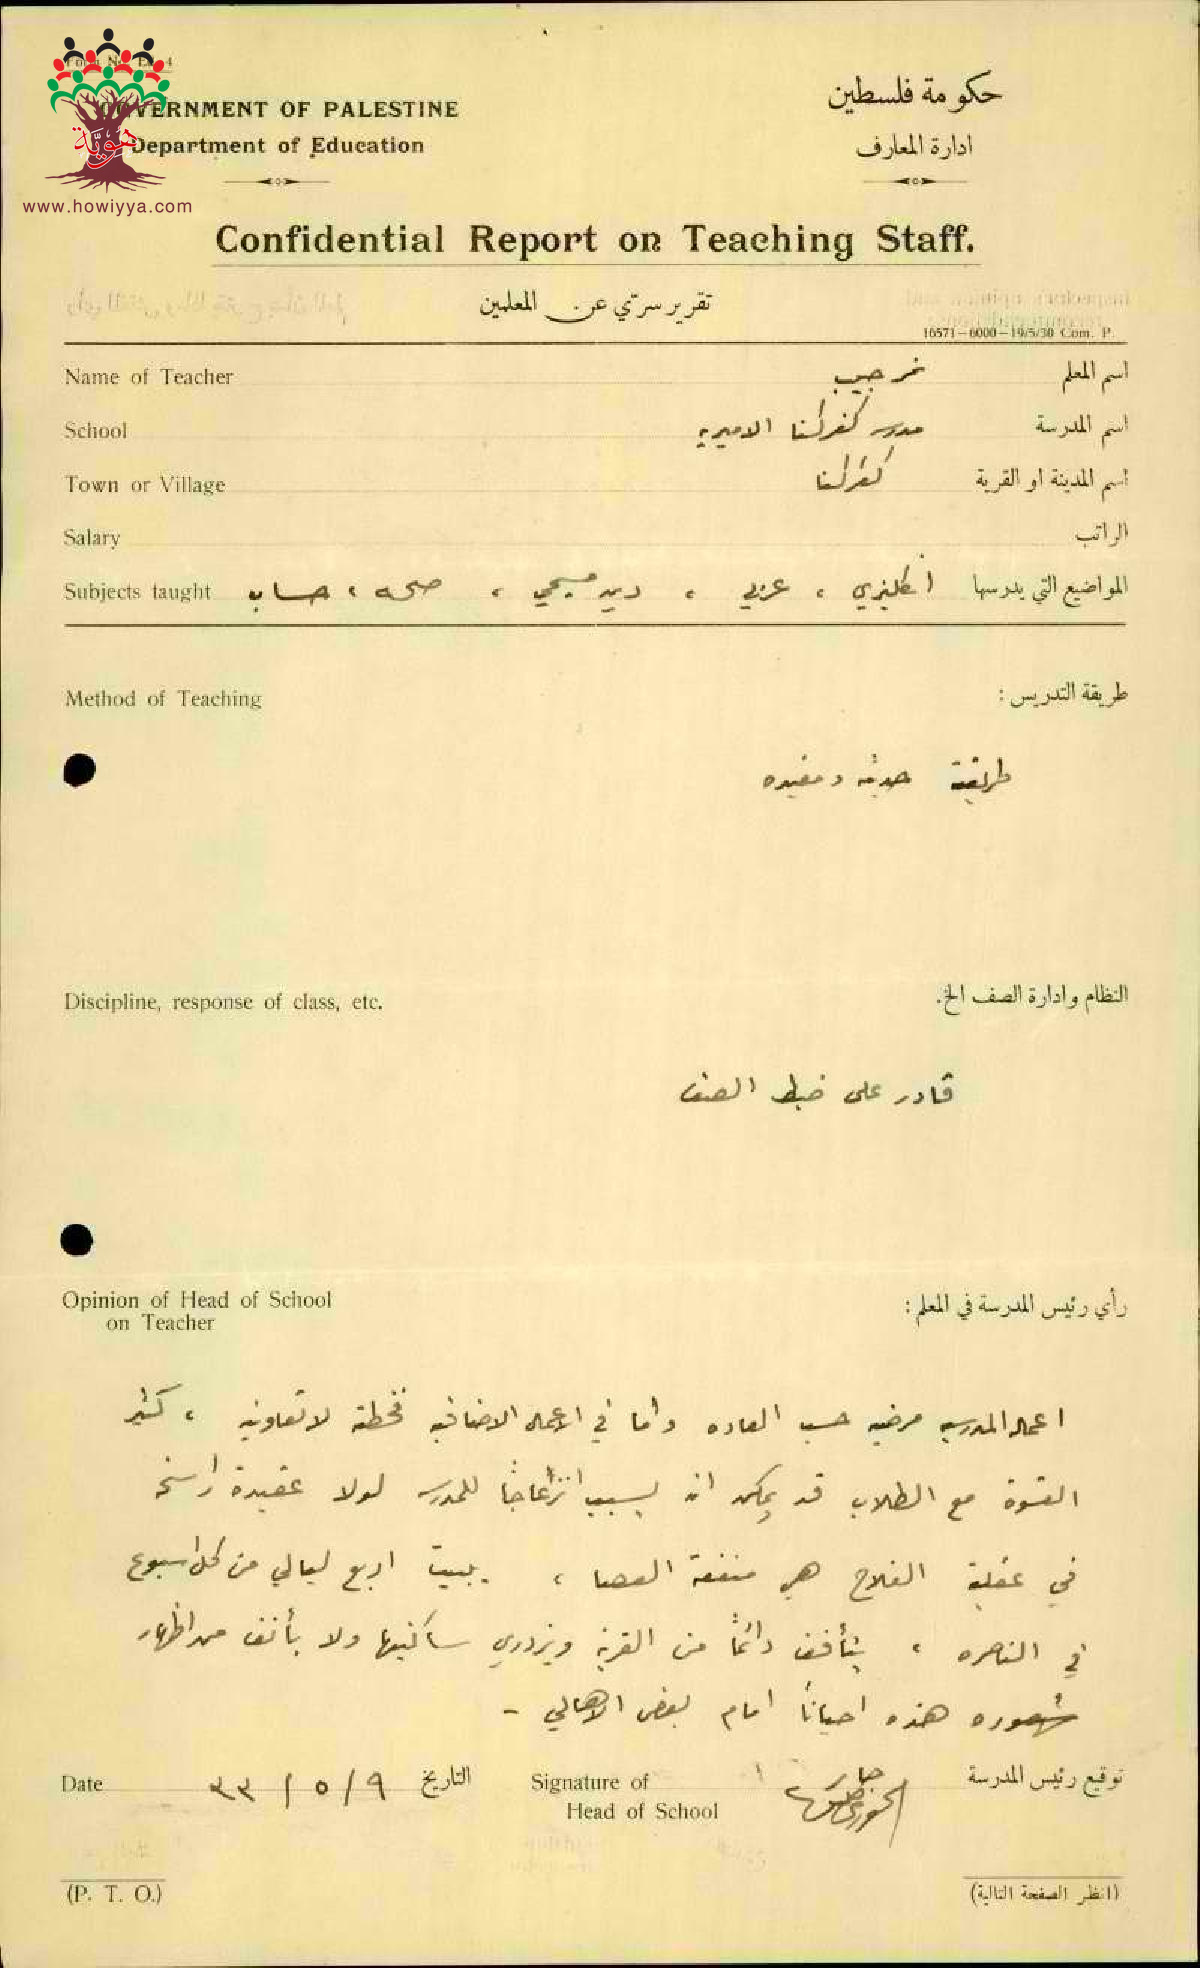 Form No. Ed. 4
GOVERNMENT OF PALESTINE
Department of Education
حكومة فلسطين
ادارة المعارف
هويّة
www.howiyya.com
Confidential Report on Teaching Staff.
تقرير سري عن المعلمين
16571—6000—19/5/30 Com. P.
Name of Teacher نمر حبيب اسم المعلم
School مدرسة كفركنا الاميرية اسم المدرسة
Town or Village كفركنا اسم المدينة او القرية
Salary الراتب
Subjects taught انكليزي ، عربي ، دين مسيحي ، صحه ، حساب المواضيع التي يدرسها
Method of Teaching طريقة التدريس :
طريقة حديثه ومفيده
Discipline, response of class, etc. النظام وادارة الصف الخ.
قادر على ضبط الصف
Opinion of Head of School
on Teacher
رأي رئيس المدرسة في المعلم :
اعماله المدرسيه مرضيه حسب العاده واما في الاعمال الاضافيه فخطته لا تعاونيه ، كثير
القسوة مع الطلاب قد يمكن ان يسبب انزعاجاً للمدرسه لولا عقيدة راسخة
في عقلية الفلاح هي منفعة العصا ، يبيت اربع ليالي من كل اسبوع
في الناصره ، يتأفف دائماً من القرية ويزدري ساكنيها ولا يأنف من اظهار
شعوره هذه احيانا امام بعض الاهالي -
Date ٩ / ٥ / ٣٣ التاريخ
Signature of
Head of School
الخوري
توقيع رئيس المدرسة
(P. T. O.)
(انظر الصفحة التالية)